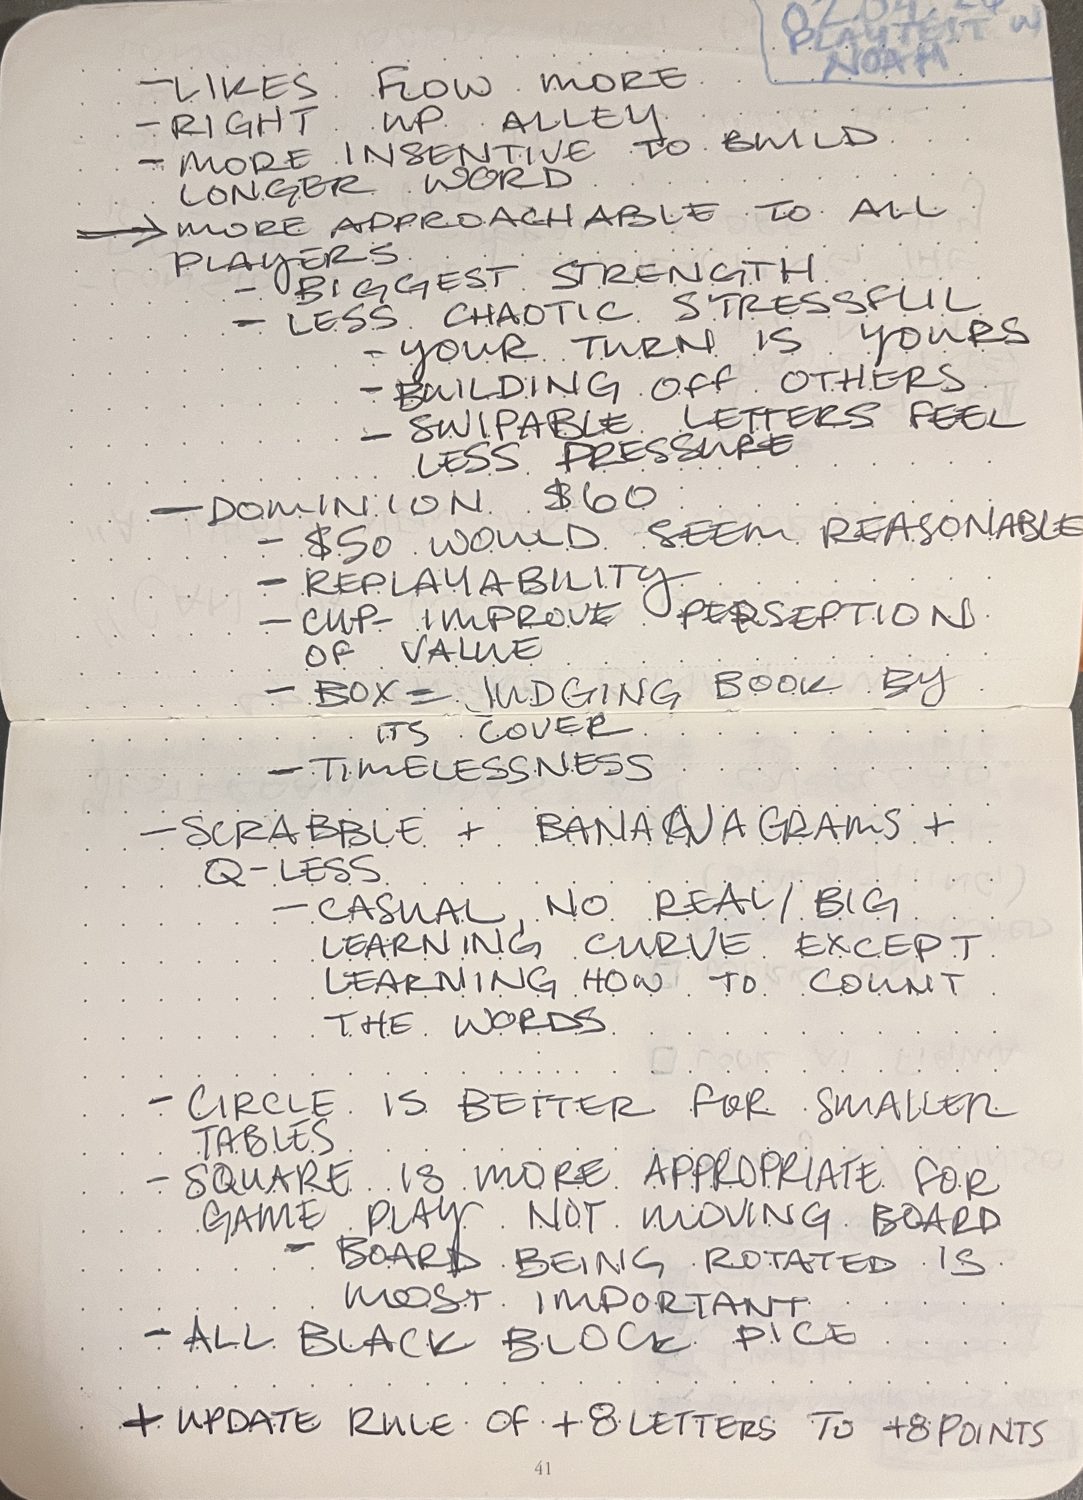 02.04.26
PLAYTEST W
NOAH
- LIKES FLOW MORE
- RIGHT UP ALLEY
- MORE INSENTIVE TO BUILD
LONGER WORD
→ MORE APPROACHABLE TO ALL
PLAYERS
- BIGGEST STRENGTH
- LESS CHAOTIC STRESSFUL
- YOUR TURN IS YOURS
- BUILDING OFF OTHERS
- SWIPABLE LETTERS FEEL
LESS PRESSURE
- DOMINION $60
- $50 WOULD SEEM REASONABLE
- REPLAYABILITY
- CUP - IMPROVE PERSEPTION
OF VALUE
- BOX = JUDGING BOOK BY
ITS COVER
- TIMELESSNESS
- SCRABBLE + BANANAGRAMS +
Q-LESS
- CASUAL, NO REAL/BIG
LEARNING CURVE EXCEPT
LEARNING HOW TO COUNT
THE WORDS
- CIRCLE IS BETTER FOR SMALLER
TABLES
- SQUARE IS MORE APPROPRIATE FOR
GAME PLAY NOT MOVING BOARD
- BOARD BEING ROTATED IS
MOST IMPORTANT
- ALL BLACK BLOCK DICE
+ UPDATE RULE OF +8 LETTERS TO +8 POINTS
41